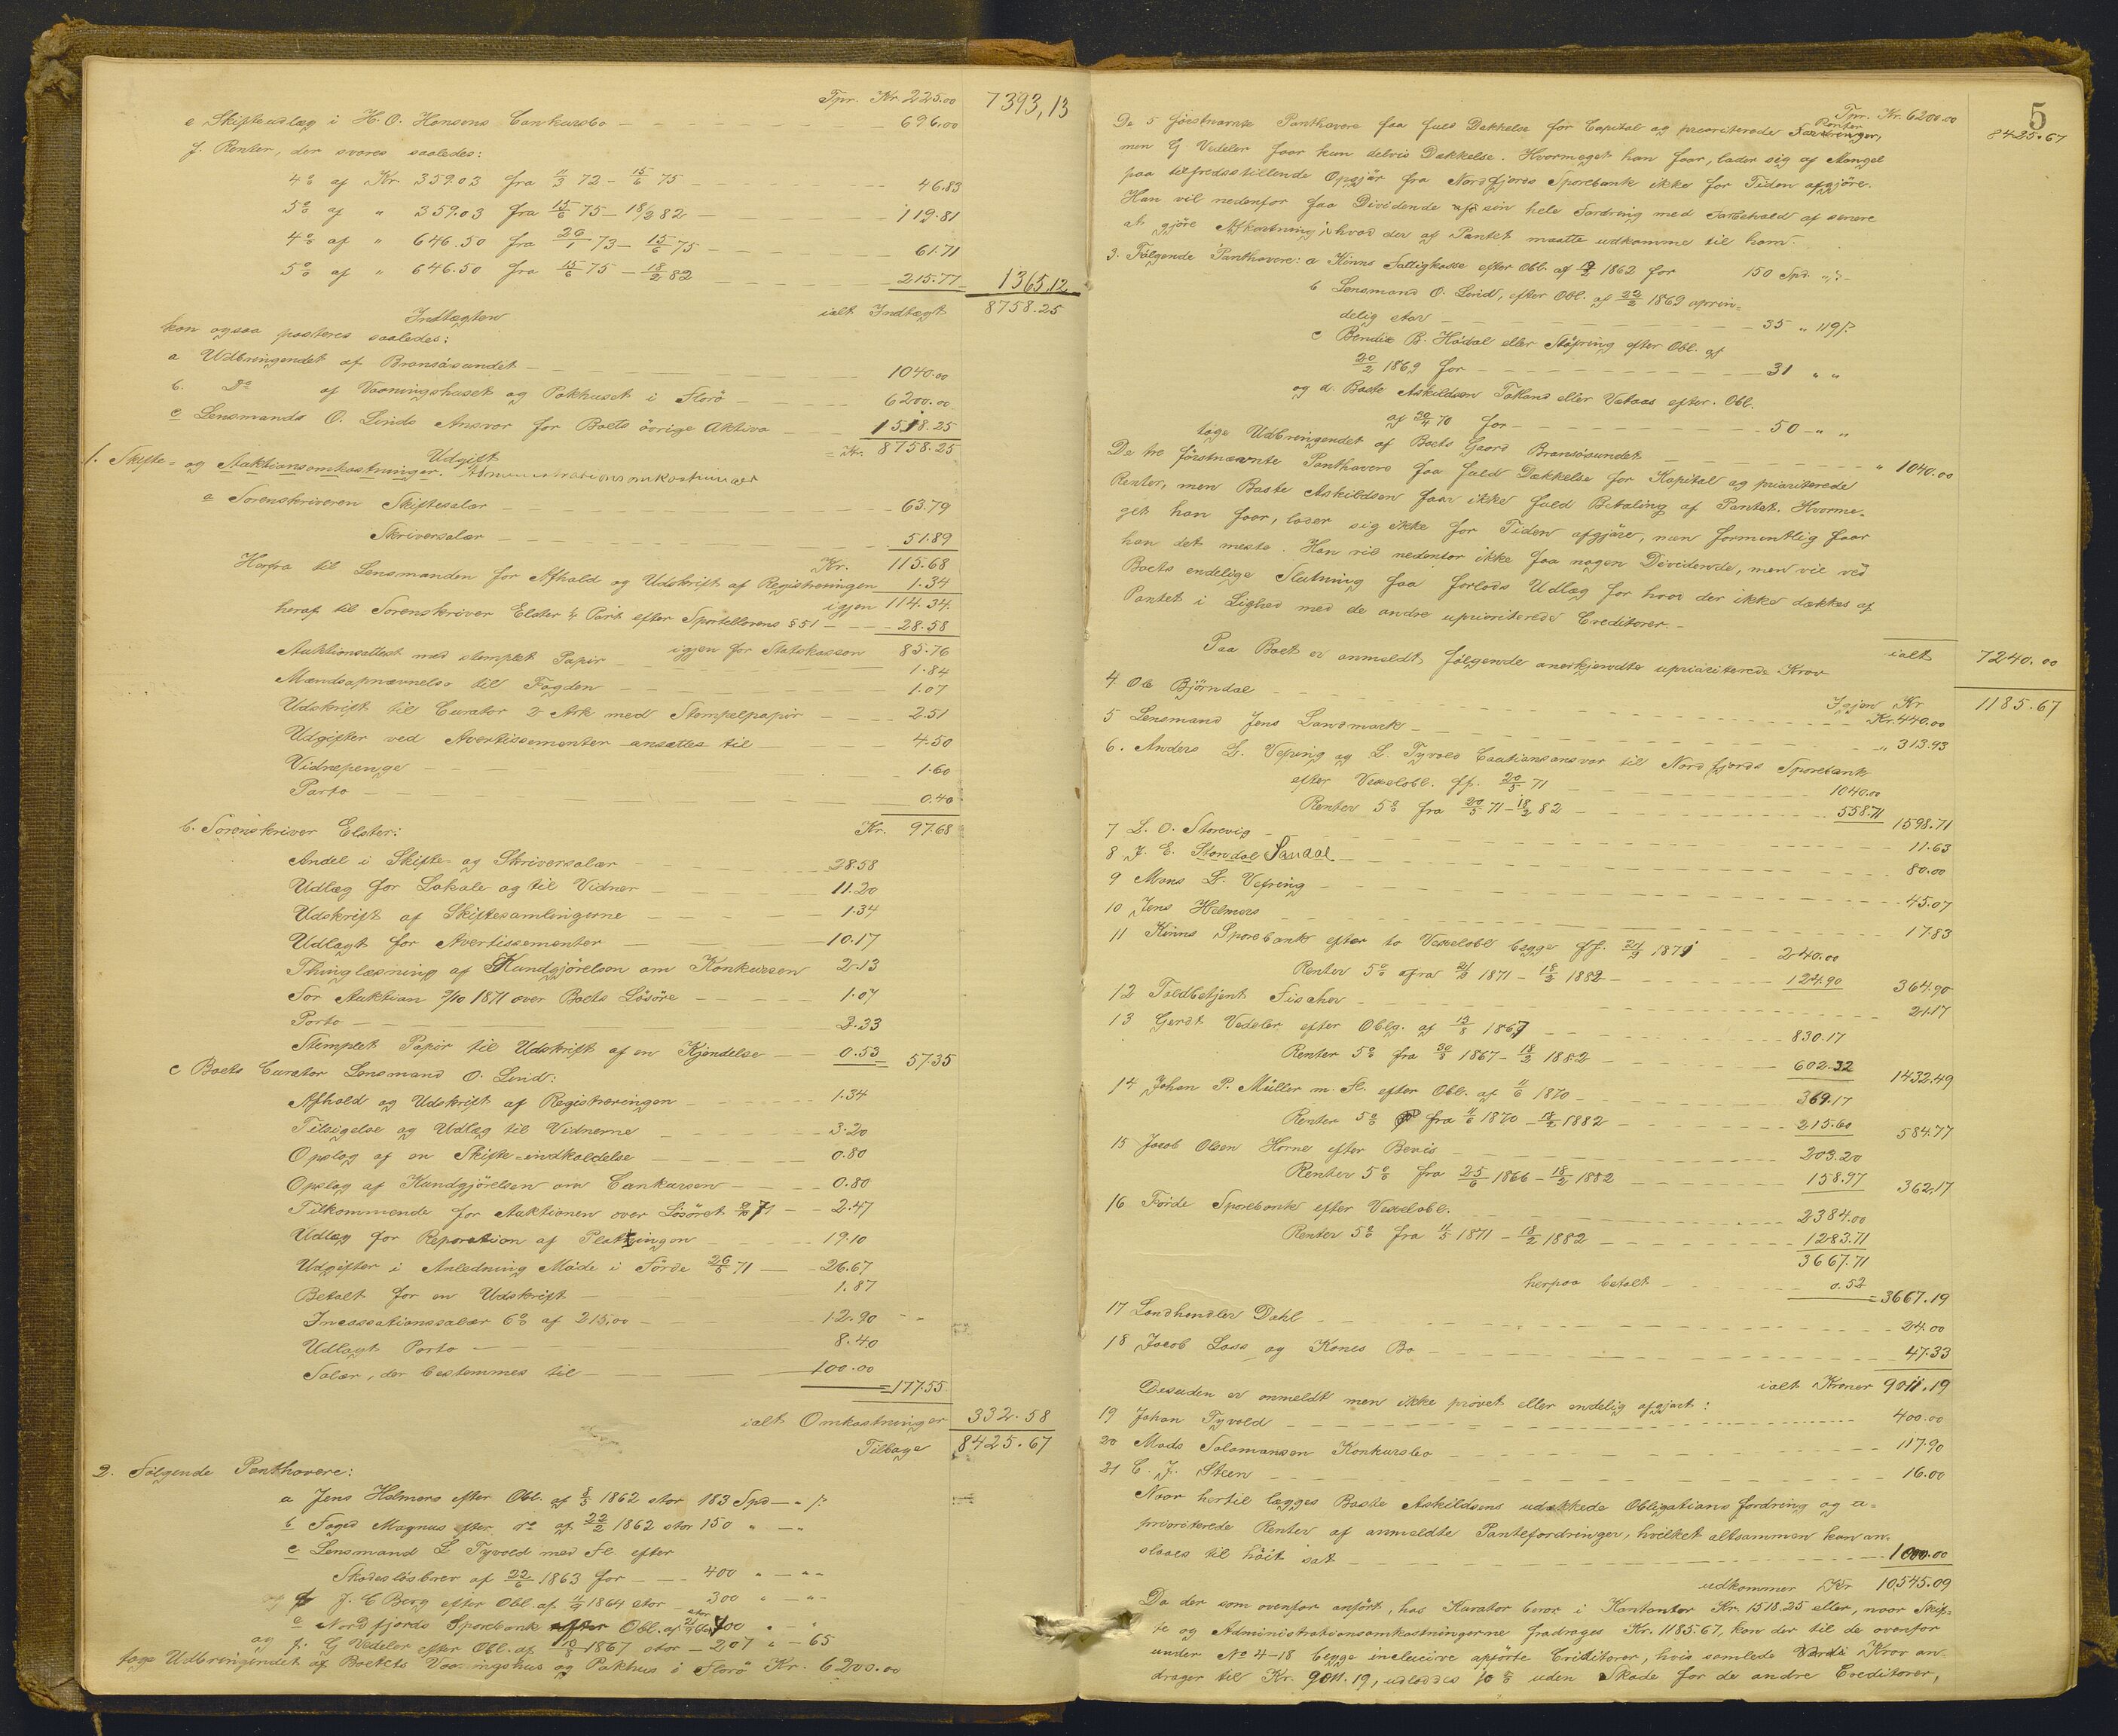 Tpr. Kr. 225.00 7393,13
e Skifteudlæg i H. O. Hansens Conkursbo 696.00
f. Renter, der svares saaledes:
4% af Kr 359.03 fra 11/3 72 - 15/6 75 46.83
5% af " 359.03 fra 15/6 75 - 18/2 82 119.81
4% af " 646.50 fra 26/1 73 - 15/6 75 61.71
5% af " 646.50 fra 15/6 75 - 18/2 82 215.77 1365.12
ialt Indtægt 8758.25
Indtægten
kan ogsaa posteres saaledes:
a Udbringendet af Bransösundet 1040.00
b. Do af Vaaningshuset og Pakhuset i Florö 6200.00
c Lensmands O. Linds Ansvar for Boets övrige Aktiva 1518.25
= Kr. 8758.25
Udgift
1. Skifte- og Auktionsomkostninger. Administrationsomkostninger
a Sorenskriveren Skiftesalær 63.79
Skriversalær 51.89
Kr. 115.68
Herfra til Lensmanden for Afhold og Udskrift af Registreringen 1.34
igjen 114.34
heraf til Sorenskriver Elster 1/4 Part efter Sportellovens § 51 28.58
igjen for Statskassen 85.76
Auktionsattest med stemplet Papir 1.84
Mændsopnævnelse til Fogden 1.07
Udskrift til Curator 2 Ark med Stempelpapir 2.51
Udgifter ved Avertissementer ansættes til 4.50
Vidnepenge 1.60
Porto 0.40
Kr. 97.68
b. Sorenskriver Elster:
Andel i Skifte- og Skriversalær 28.58
Udlæg for Lokale og til Vidner 11.20
Udskrift af Skiftesamlingerne 1.34
Udlagt for Avertissementer 10.17
Thinglæsning af Kundgjörelsen om Konkursen 2.13
For Auktion 9/10 1871 over Boets Lösöre 1.07
Porto 2.33
Stemplet Papir til Udskrift af en Kjendelse 0.53 = 57.35
c Boets Curator Lensmand O. Lind:
Afhold og Udskrift af Registreringen 1.34
Tilsigelse og Udlæg til Vidnerne 3.20
Opslag af en Skifte-indkaldelse 0.80
Opslag af Kundgjörelsen om Conkursen 0.80
Tilkommende for Auktionen over Lösöret 71 2.47
Udlæg for Reparation af 19.10
Udgifter i Anledning Möde i Förde 26/5 71 26.67
Betalt for en Udskrift 1.87
Incassationssalær 6% af 215,00 12.90
Udlagt Porto 8.40
Salær, der bestemmes til 100.00
= 177.55
ialt Omkostninger 332.58
Tilbage 8425.67
2. Følgende Panthavere:
a Jens Helmers efter Obl. af 8/5 1862 stor 183 Spd
b Foged Magnus efter do af 22/2 1862 stor 150 "
c Lensmand L Tyvold med Fl. efter
Skadesløsbrev af 22/6 1863 for 400 "
J. C Berg efter Obl. af 11/9 1864 stor 300 "
e Nordfjords Sparebank efter Obl. af stor 400
og f. G Vedeler efter Obl. af 19/8 1867 stor 207 " 65
tage Udbringendet af Boets Vaaningshus og Pakhus i Florö Kr. 6200.00
5
Tpr. Kr. 6200.00 8425.67
De 5 förstnævnte Panthavere faa fuld Dækkelse for Capital og prioriterede Renter,
men G Vedeler faar kun delvis Dækkelse. Hvormeget han faar, lader sig af Mangel
paa tilfredsstillende Opgjör fra Nordfjords Sparebank ikke for Tiden afgjöre.
Han vil nedenfor faa Dividende af sin hele Fordring med Forbehold af senere
at gjöre Afkortning i hvad der af Pantet maatte udkomme til ham.
3. Fölgende Panthavere: a Kinns Fattigkasse efter Obl. af 1862 for 150 Spd.
b Lensmand O. Lind, efter Obl. af 22/2 1869 oprin-
delig stor 35 " 119 ß
c Bendix B. Hödal eller Stöfring efter Obl. af
20/2 1869 for 31 " "
og d. Baste Askildsen Takand eller Vataas efter Obl.
af 30/4 70 for 50 " "
tage Udbringendet af Boets Gaard Bransösundet " 1040.00
De tre förstnævnte Panthavere faa fuld Dækkelse for Kapital og prioriterede
Renter, men Baste Askildsen faar ikke fuld Betaling af Pantet. Hvorme-
get han faar, lader sig ikke for Tiden afgjöre, men formentlig faar
han det meste. Han vil nedenfor ikke faa nogen Dividende, men vil ved
Boets endelige Slutning faa forlods Udlæg for hvad der ikke dækkes af
Pantet i Lighed med de andre uprioriterede Creditorer.
ialt 7240.00
Paa Boet er anmeldt fölgende anerkjendte uprioriterede Krav
Igjen Kr 1185.67
4. Ole Björndal Kr. 440.00
5 Lensmand Jens Landmark " 313.93
6. Anders L. Vefring og L. Tyvold Cautionsansvar til Nordfjords Sparebank
efter Vexelobl. ff. 20/5 71 1040.00
Renter 5% fra 20/5 71 - 18/2 82 558.71 1598.71
7 L. O. Storevig 11.63
8 J. E. Standal Sandal 80.00
9 Mons L. Vefring 45.07
10 Jens Helmers 17.83
11 Kinns Sparebank efter to Vexelobl begge ff. 21/9 1871 240.00
Renter 5% fra 21/9 1871 - 18/2 1882 124.90 364.90
12 Toldbetjent Fischer 21.17
13 Gerdt Vedeler efter Oblg. af 19/8 1867 830.17
Renter 5% fra 30/8 1867 - 18/2 1882 602.32 1432.49
14 Johan P. Müller m. Fl. efter Obl. af 11/6 1870 369.17
Renter 5% fra 11/6 1870 - 18/2 1882 215.60 584.77
15 Jacob Olsen Horne efter Bevis 203.20
Renter 5% fra 25/6 1866 - 18/2 1882 158.97 362.17
16 Förde Sparebank efter Vexelobl. 2384.00
Renter 5% fra 11/5 1871 - 18/2 1882 1283.71
3667.71
herpaa betalt 0.52 = 3667.19
17 Landhandler Dahl 24.00
18 Jacob Lass og Kones Bo 47.33
ialt Kroner 9011.19
Desuden er anmeldt men ikke prövet eller endelig afgjort:
19 Johan Tyvold 400.00
20 Mads Salamonsen Konkursbo 117.90
21 C. J. Steen 16.00
Naar hertil lægges Baste Askildsens udækkede Obligationsfordring og u-
prioriterede Renter af anmeldte Pantefordringer, hvilket altsammen kan an-
slaaes til höit sat 1000.00
udkommer Kr 10,545.09
Da der som ovenfor anfört, hos Kurator beror i Kontanter Kr. 1518.25 eller, naar Skif-
te og Administrationsomkostningerne fradrages Kr. 1185.67, kan der til de ovenfor
under No 4-18 begge inclusive opförte Creditorer, hvis samlede Krav an-
drager til Kr. 9011.19, udloddes 10% uden Skade for de andre Creditorer,